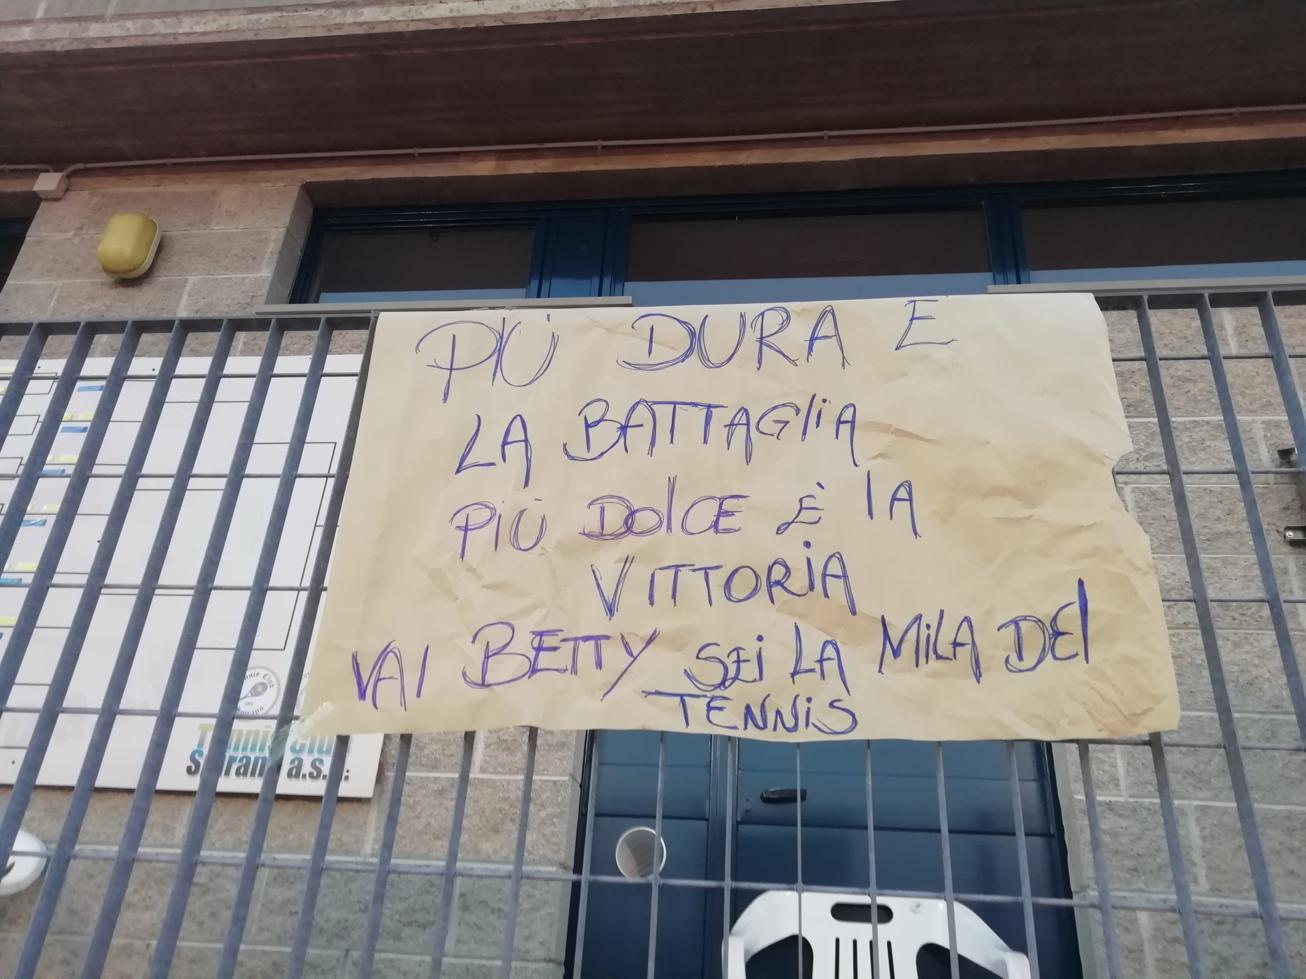 PIÙ DURA E
LA BATTAGLIA
PIÙ DOLCE È LA
VITTORIA
VAI BETTY SEI LA MILA DEL
TENNIS
Tennis Club
a.s.